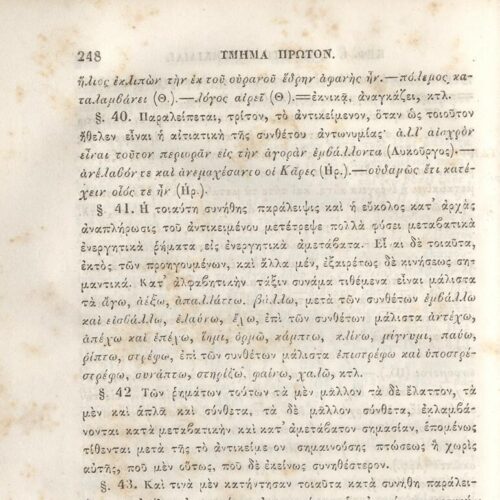 248 ΤΜΗΜΑ ΠΡΩΤΟΝ.
ἥλιος ἐκλιπὼν τὴν ἐκ τοῦ οὐρανοῦ ἕδρην ἀφανὴς ἦν.—πόλεμος κα-
ταλαμβάνει (Θ.).—λόγος αἱρεῖ (Θ.)=ἐκνικᾷ, ἀναγκάζει, κτλ.
§. 40. Παραλείπεται, τρίτον, τὸ ἀντικείμενον, ὅταν ὡς τοιοῦτον
ἤθελεν εἶναι ἡ αἰτιατικὴ τῆς συνθέτου ἀντωνυμίας· ἀλλ' αἰσχρὸν
εἶναι τοῦτον περιορᾶν εἰς τὴν ἀγορὰν ἐμβάλλοντα (Λυκοῦργος).—
ἀνέλαβόν τε καὶ ἀνεμαχέσαντο οἱ Κᾶρες (Ἡρ.).—οὐδαμῶς ἔτι κατέ-
χειν οἷός τε ἦν (Ἡρ.).
§. 41. Ἡ τοιαύτη συνήθης παράλειψις καὶ ἡ εὔκολος κατ' ἀρχὰς
ἀναπλήρωσις τοῦ ἀντικειμένου μετέτρεψε πολλὰ φύσει μεταβατικὰ
ἐνεργητικὰ ῥήματα εἰς ἐνεργητικὰ ἀμετάβατα. Εἶναι δὲ τοιαῦτα,
ἐκτὸς τῶν προηγουμένων, καὶ ἄλλα μέν, ἐξαιρέτως δὲ κινήσεως ση-
μαντικά. Κατ' ἀλφαβητικὴν τάξιν συνάμα τιθέμενα εἶναι μάλιστα
τὰ ἄγω, ἀέξω, ἀπαλλάττω, βάλλω, μετὰ τῶν συνθέτων ἐμβάλλω
καὶ εἰσβάλλω, ἐλαύνω, ἔχω, ἐπὶ τῶν συνθέτων μάλιστα ἀντέχω,
ἀπέχω καὶ ἐπέχω, ἵημι, ὁρμῶ, κάμπτω, κλίνω, μίγνυμι, παύω,
ῥίπτω, στρέφω, ἐπὶ τῶν συνθέτων μάλιστα ἐπιστρέφω καὶ ὑποστρέ-
στρέφω, συνάπτω, στηρίζω, φαίνω, χαλῶ, κτλ.
§. 42 Τῶν ῥημάτων τούτων τὰ μὲν μᾶλλον τὰ δὲ ἔλαττον, τὰ
μὲν καὶ ἁπλᾶ καὶ σύνθετα, τὰ δὲ μᾶλλον σύνθετα, ἐκλαμβά-
νονται κατὰ μεταβατικὴν καὶ κατ' ἀμετάβατον σημασίαν, ἑπομένως
τίθενται μετὰ τῆς τὸ ἀντικείμενον σημαινούσης πτώσεως ἢ χωρὶς
αὐτῆς, ποῦ μὲν οὕτως, ποῦ δὲ ἐκείνως συνηθέστερον.
§. 43. Καὶ τινὰ μὲν κατήντησαν τοιαῦτα κατὰ συνήθη παράλει-